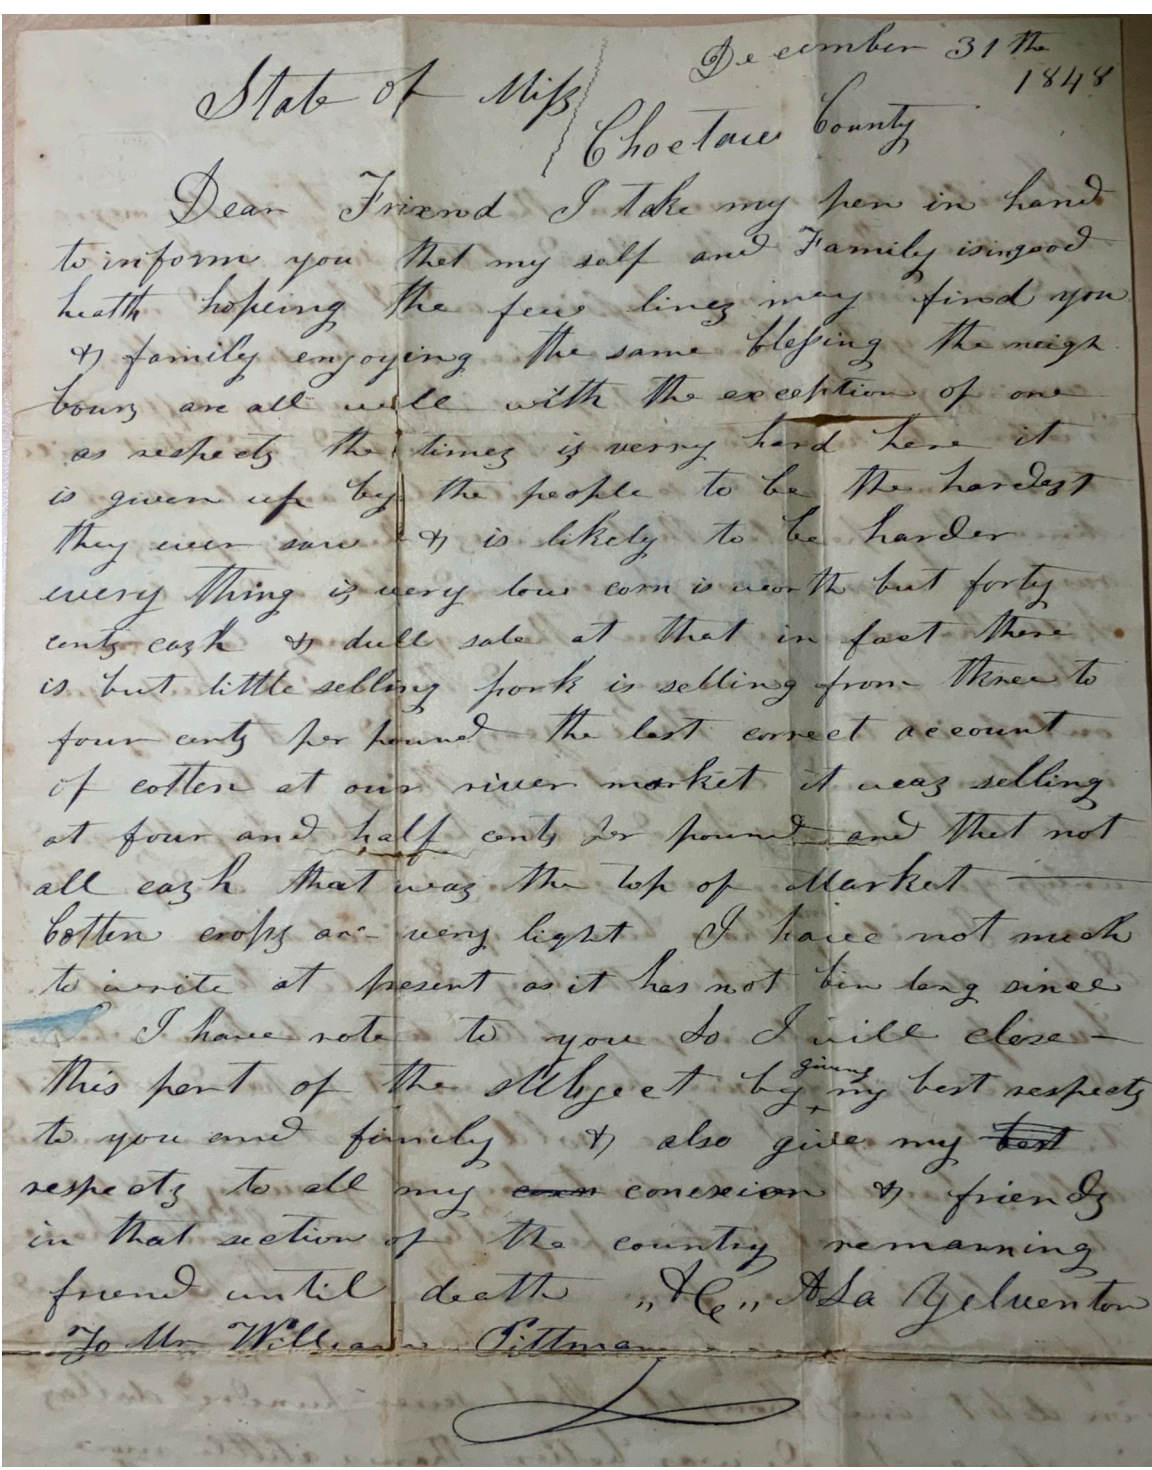 December 31 the
1848
State of Miss
Choctaw County
Dear Friend I take my pen in hand
to inform you that my self and Family is in good
heath hopeing the few lines may find you
& family enjoying the same blessing the neigh
bours are all well with the exception of one
as respects the times is verry hard here it
is given up by the people to be the hardest
they ever saw & is likely to be harder
every thing is very low corn is worth but forty
cents cash & dull sale at that in fact there
is but little selling pork is selling from three to
four cents per pound the last correct account
of cotten at our river market it was selling
at four and half cents per pound and that not
all cash that was the top of Market —
Cotten crops are very light I have not much
to write at present as it has not bin long since
I have rote to you so I will close —
this part of the subject by giving my best respects
to you and family & also give my best
respects to all my conexion & friends
in that section of the country remanning
friend until death „&C„ Asa Yelventon
To Mr William Pittman